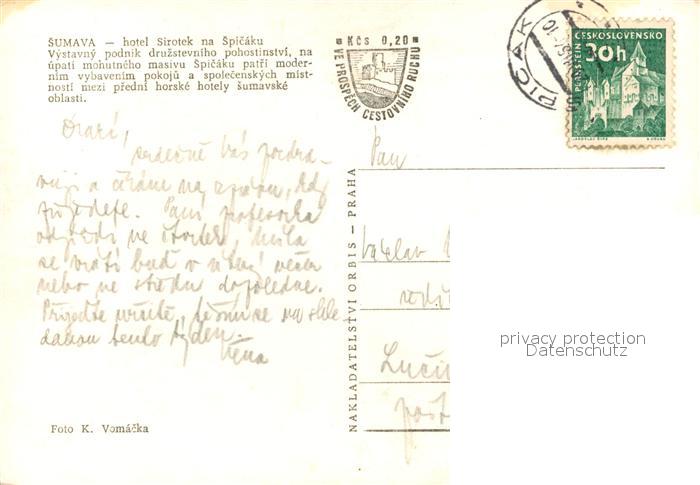 ŠUMAVA — hotel Sirotek na Špičáku
Výstavný podnik družstevního pohostinství, na
úpatí mohutného masivu Špičáku patří moder-
ním vybavením pokojů a společenských míst-
ností mezi přední horské hotely šumavské
oblasti.
KčS 0,20
VE PROSPĚCH CESTOVNÍHO RUCHU
PIČÁK
ČESKOSLOVENSKO
30h
PERNŠTEJN
Drazí,
srdečně Vás pozdra-
vuji a čekám na zprávu, kdy
přijedete. Paní profesorka
odjíždí ve čtvrtek,
se vrátí buď v úterý večer
nebo ve středu dopoledne.
Přijeďte určitě, těším se na shle-
danou tento týden.
Pan
Václav
Lučí
pošt
NAKLADATELSTVÍ ORBIS — PRAHA
privacy protection
Datenschutz
Foto K. Vomáčka